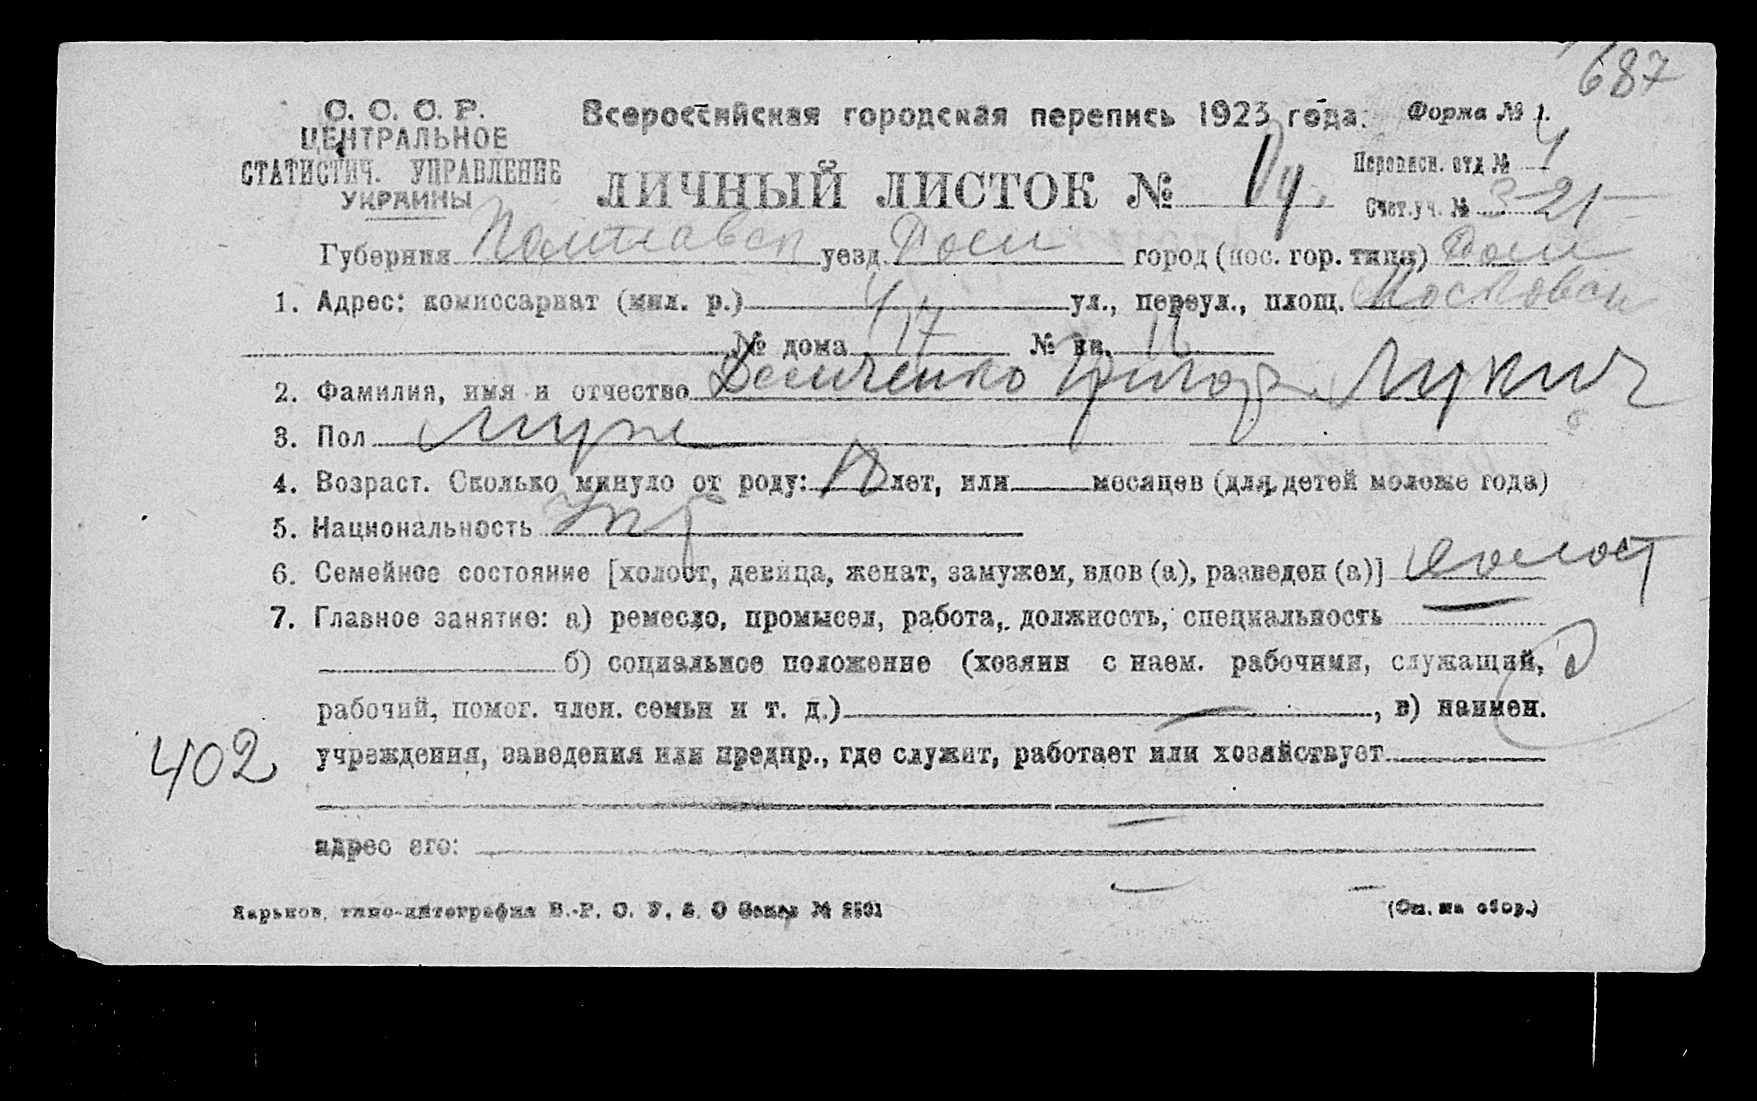 687
С. С. С. Р.
ЦЕНТРАЛЬНОЕ
СТАТИСТИЧ. УПРАВЛЕНИЕ
УКРАИНЫ
Всероссийская городская перепись 1923 года. Форма № 1.
Переписн. отд № 4
ЛИЧНЫЙ ЛИСТОК №
Счет. уч. № 21
Губерния Полтавск уезд Ром город (пос. гор. типа) Ром
1. Адрес: комиссариат (мил. р.) 4 ул., переул., площ. Московск
№ дома 17 № кв.
2. Фамилия, имя и отчество Демченко Григор. Лукич
3. Пол муж
4. Возраст. Сколько минуло от роду: лет, или месяцев (для детей моложе года)
5. Национальность Укр
6. Семейное состояние [холост, девица, женат, замужем, вдов (а), разведен (а)] холост
7. Главное занятие: а) ремесло, промысел, работа, должность, специальность —
б) социальное положение (хозяин с наем. рабочими, служащий,
рабочий, помог. член. семьи и т. д.) — , в) наимен.
402 учреждения, заведения или предпр., где служит, работает или хозяйствует
адрес его:
Харьков, типо-литография В.-Р. О. У. З. О Заказ №
(См. на обор.)